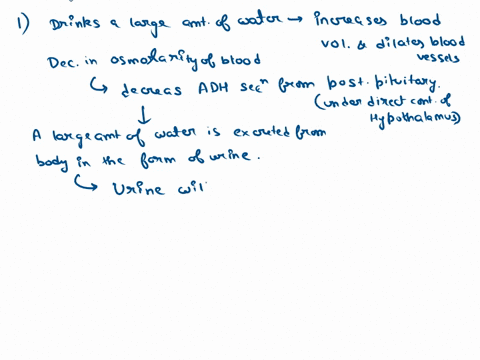 1) Drinks a large amt. of water → increases blood
vol. & dilates blood
vessels
Dec. in osmolarity of blood
↳ decreas ADH secⁿ from post. pituitary.
(under direct cont. of
Hypothalamus)
↓
A large amt of water is excreted from
body in the form of urine.
↳ Urine wil